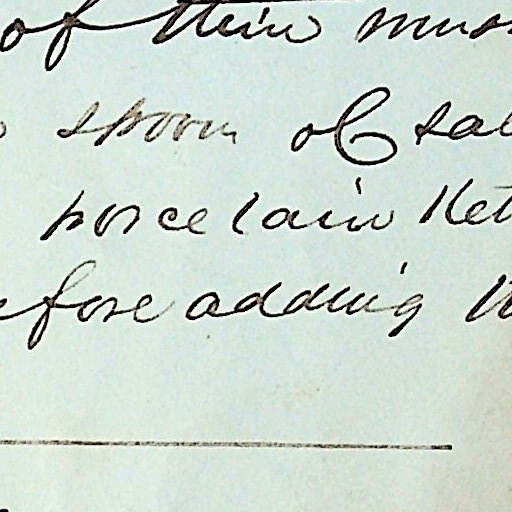 of their mus
spoon of sal
porcelain Ket
efore adding th